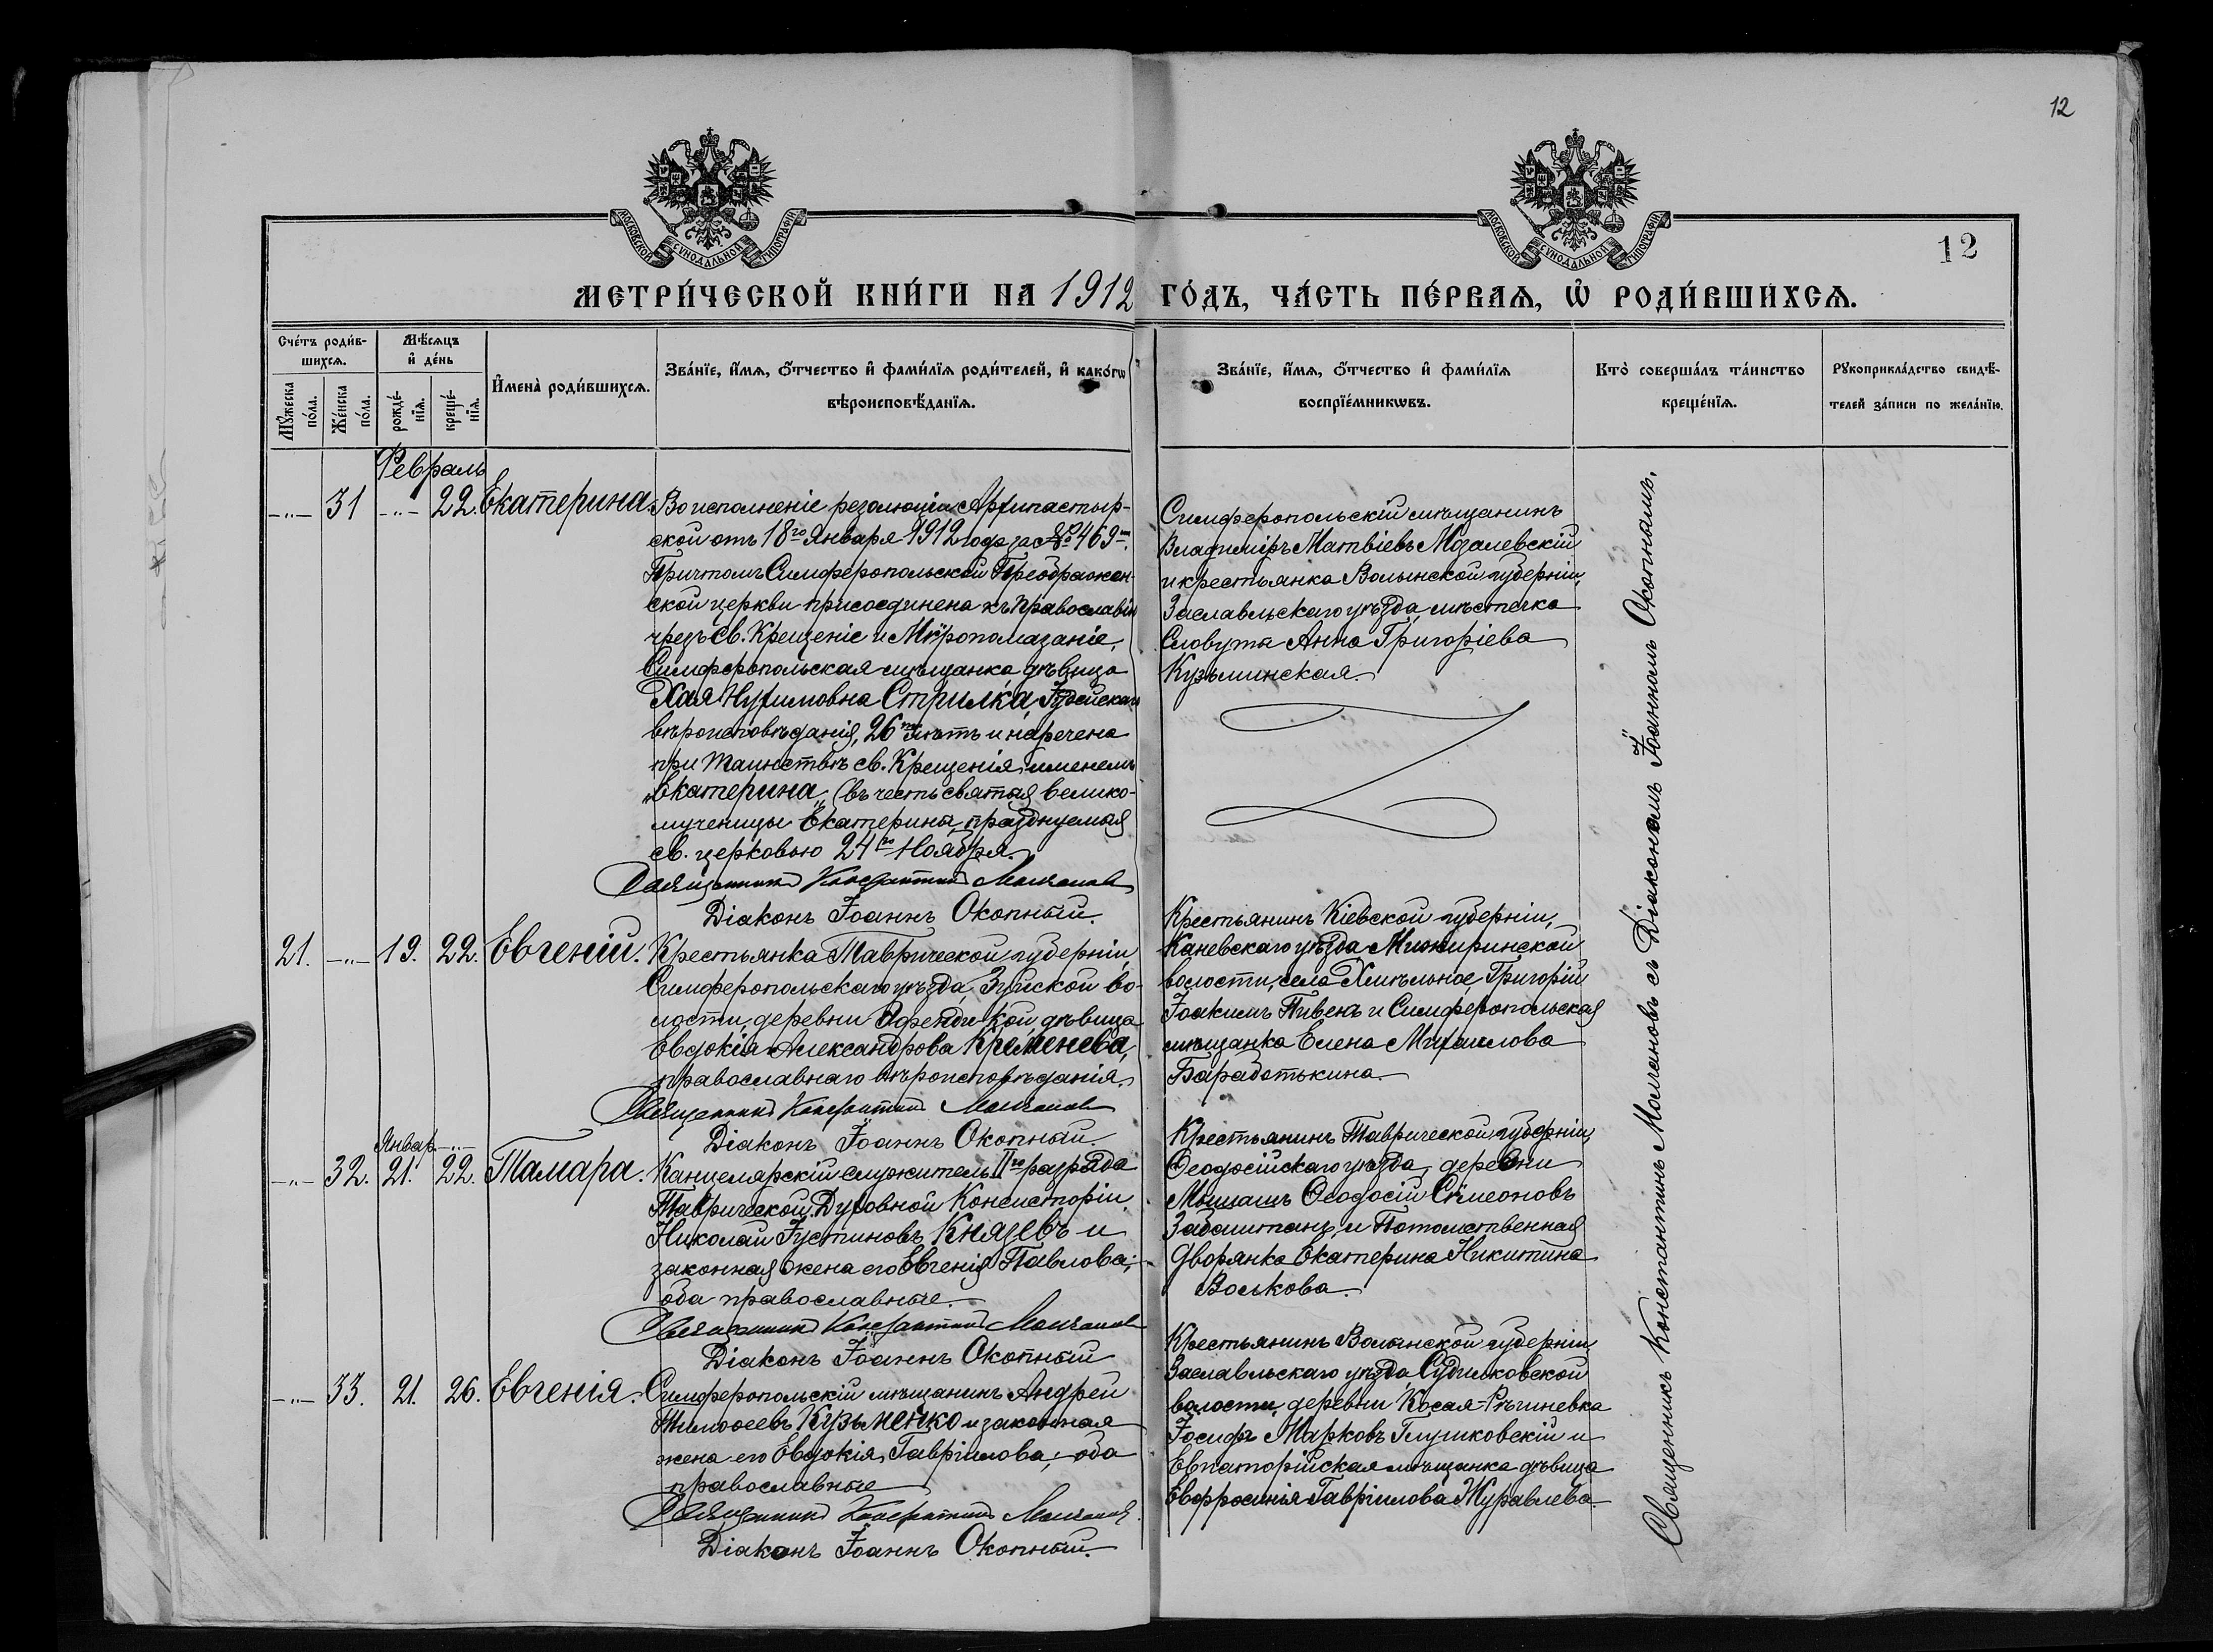 12
МОСКОВСКОЙ СѴНОДАЛЬНОЙ ТИПОГРАФІИ
МОСКОВСКОЙ СѴНОДАЛЬНОЙ ТИПОГРАФІИ
12
МЕТРИ́ЧЕСКОЙ КНИ́ГИ НА 1912 ГО́ДЪ, ЧА́СТЬ ПЕ́РВАѦ, Ѡ҆ РОДИ́ВШИХСѦ.
Сче́тъ роди́в-
шихсѧ.
Мꙋ́жеска
по́ла.
Же́нска
по́ла.
Мѣ́сѧцъ
и҆ де́нь
рожде́-
нїѧ.
креще́-
нїѧ.
И҆мена̀ роди́вшихсѧ.
Зва́нїе, и҆́мѧ, ѻ҆́тчество и҆ фами́лїѧ роди́телей, и҆ како́гѡ
вѣроисповѣ́данїѧ.
Зва́нїе, и҆́мѧ, ѻ҆́тчество и҆ фами́лїѧ
воспрїе́мникѡвъ.
Кто̀ соверша́лъ та́инство
креще́нїѧ.
Рꙋкоприкла́дство свидѣ́-
телей за́писи по жела́нїю.
Февраль
-"- 31 -"- 22. Екатерина.
Во исполненіе резолюціи Архипастыр-
ской отъ 18го Января 1912 года за № 469мъ.
Причтомъ Симферопольской Преображен-
ской церкви присоединена къ православію
чрезъ св. Крещеніе и Мѵропомазаніе,
Симферопольская мѣщанка, дѣвица
Хая Нухимовна Стрилка, Іудейскаго
вѣроисповѣданія, 26ти лѣтъ и наречена
при таинствѣ св. Крещенія именемъ
„Екатерина„ (въ честь святыя велико-
мученицы Екатерины, празднуемыя
св. церковью 24го Ноября.
Священникъ Константинъ Молчановъ
Діаконъ Іоаннъ Окопный.
Симферопольскій мѣщанинъ
Владиміръ Матвіевъ Мозалевскій
и крестьянка Волынской губерніи,
Заславльскаго уѣзда, мѣстечка
Славуты Анна Григоріева
Кузьминская.
21. -"- 19. 22. Евгеній.
Крестьянка Таврической губерніи,
Симферопольскаго уѣзда, Зуйской во-
лости, деревни Афенди-Кой, дѣвица
Евдокія Александрова Кременева,
православнаго вѣроисповѣданія.
Священникъ Константинъ Молчановъ
Діаконъ Іоаннъ Окопный.
Крестьянинъ Кіевской губерніи,
Каневскаго уѣзда Межиринской
волости, села Хмѣльное, Григорій
Іоакимъ Пивень и Симферопольская
мѣщанка Елена Михаилова
Барабошкина.
Январ. -"-
-"- 32. 21. 22. Тамара.
Канцелярскій служитель IIго разряда
Таврической Духовной Консисторіи,
Николай Іустиновъ Князевъ и
законная жена его Евгенія Павлова;
оба православные.
Священникъ Константинъ Молчановъ
Діаконъ Іоаннъ Окопный
Крестьянинъ Таврической губерніи,
Ѳеодосійскаго уѣзда, деревни
Ѳеодосій Сѵмеоновъ
и Потомственная
дворянка Екатерина Никитина
Волкова.
-"- 33. 21. 26. Евгенія.
Симферопольскій мѣщанинъ Андрей
Тимоѳеевъ Кузьменко и законная
жена его Евдокія Гавріилова; оба
православные
Священникъ Константинъ Молчановъ.
Діаконъ Іоаннъ Окопный.
Крестьянинъ Волынской губерніи
Заславльскаго уѣзда Судилковской
волости, деревни Косая-
Іосифъ Марковъ Глушковскій и
Евпаторійская мѣщанка дѣвица
Евфросинія Гавріилова Журавлева
Священникъ Константинъ Молчановъ съ Діакономъ Іоанномъ Окопнымъ.